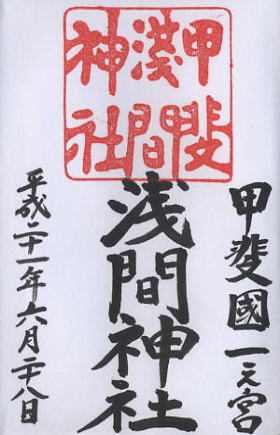 甲斐
淺間
神社
甲斐國一之宮
浅間神社
平成二十一年六月二十八日